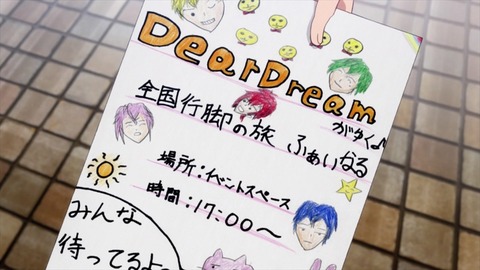 DearDream
がゆく♪
全国行脚の旅 ふぁいなる
場所:イベントスペース
時間:17:00〜
みんな
待ってるよ〜